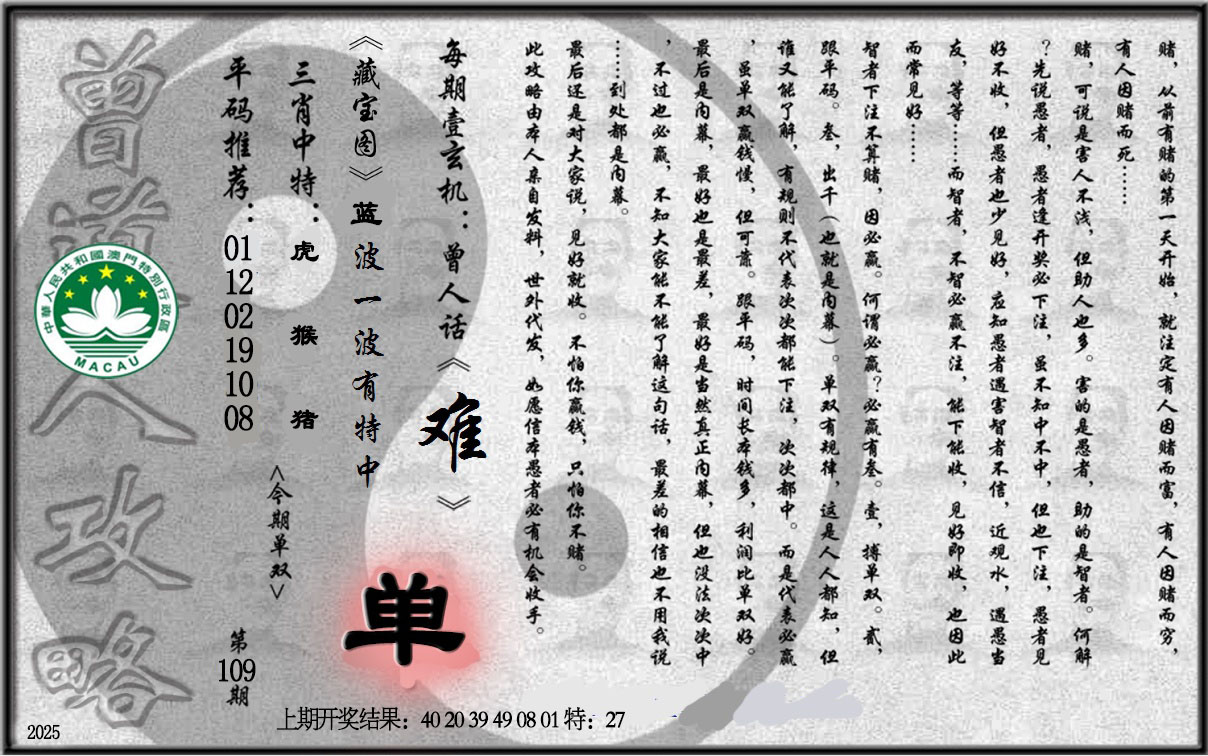 赌，从前有赌的第一天开始，就注定有人因赌而富，有人因赌而穷，
有人因赌而死……
赌，可说是害人不浅，但助人也多。害的是愚者，助的是智者。何解
？先说愚者，愚者逢开奖必下注，虽不知中不中，但也下注，愚者见
好不收，但愚者也少见好，应知愚者遇害智者不信，近观水，遇愚当
友，等等……而智者，不智必赢不注，能下能收，见好即收，也因此
而常见好……
智者下注不算赌，因必赢。何谓必赢？必赢有叁。壹，搏单双。贰，
跟平码。叁，出千（也就是内幕）。单双有规律，这是人人都知，但
谁又能了解，有规则不代表次次都能下注，次次都中。而是代表必赢
，虽单双赢钱慢，但可靠。跟平码，时间长本钱多，利润比单双好。
最后是内幕，最好也是最差，最好是当然真正内幕，但也没法次次中
，不过也必赢，不知大家能不能了解这句话，最差的相信也不用我说
……到处都是内幕。
最后还是对大家说，见好就收。不怕你赢钱，只怕你不赌。
此攻略由本人亲自发料，世外代发，如愿信本愚者必有机会收手。
每期壹玄机：曾人话《难》
《藏宝图》蓝波一波有特中
单
三肖中特：虎 猴 猪
<今期单双>
平码推荐：01 12 02 19 10 08
第109期
曾道人攻略
中華人民共和國澳門特別行政區
MACAU
上期开奖结果：40 20 39 49 08 01 特：27
2025